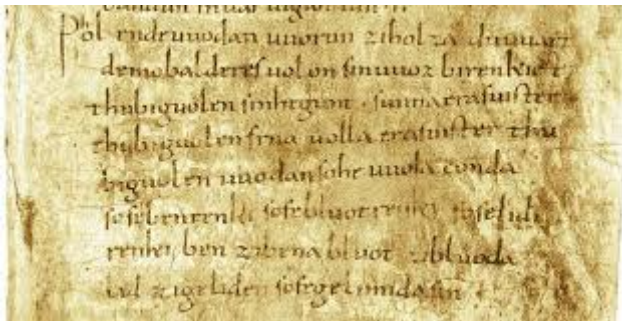 Phol endeuuodan uuorun ziholza duuuart
demobalderes uolon sinuuoz birenkict
thubiguolen sinhtgunt · sunnaerasuister
thubiguolen friia uolla erasuister thu
biguolen uuodan sohe uuola conda
sosebenrenki sosebluotrenki soselidi
renki ben zibena bluot zibluoda
lid zigeliden sosegelimida sin